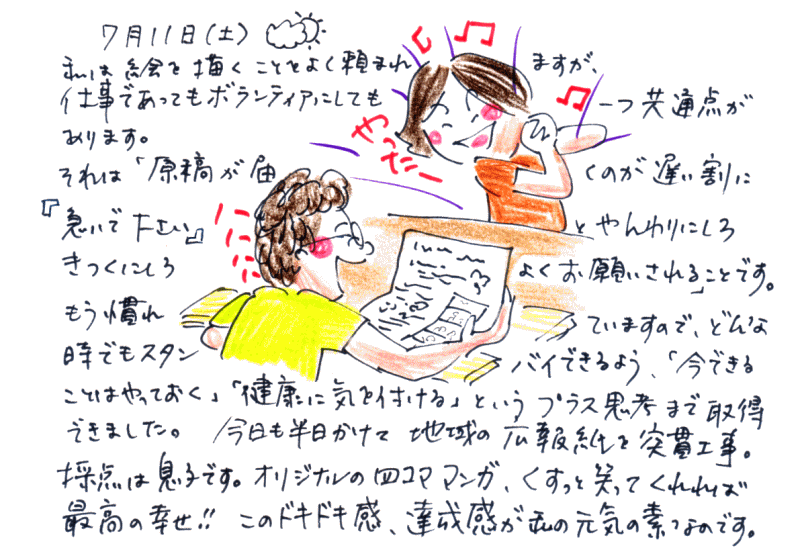 7月11日(土)
私は絵を描くことをよく頼まれますが、
仕事であってもボランティアにしても一つ共通点が
あります。
やったー
それは「原稿が届くのが遅い割に
『急いで下さい』とやんわりにしろ
きつくにしろよくお願いされる」ことです。
ににに
もう慣れていますので、どんな
時でもスタンバイできるよう、「今できる
ことはやっておく」「健康に気を付ける」というプラス思考まで取得
できました。 今日も半日かけて地域の広報紙を突貫工事。
採点は息子です。オリジナルの四コママンガ、くすっと笑ってくれれば
最高の幸せ!! このドキドキ感、達成感が私の元気の素なのです。